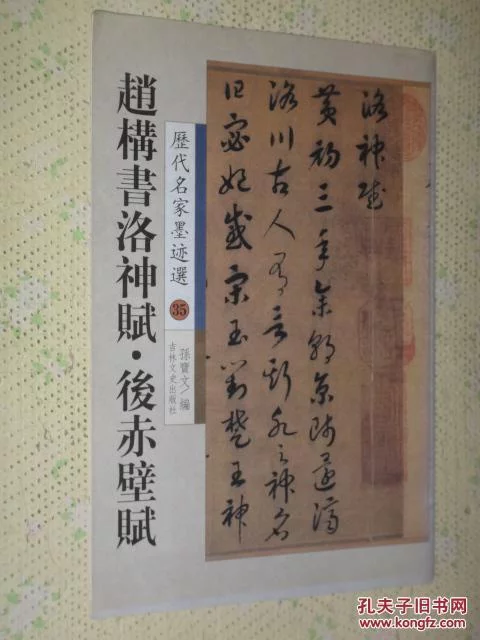 趙構書洛神賦·後赤壁賦
歷代名家墨迹選
35
孫寶文/編
吉林文史出版社
洛神賦
黃初三年余朝京師還濟
洛川古人有言斯水之神名
曰宓妃感宋玉對楚王神
孔夫子旧书网
www.kongfz.com